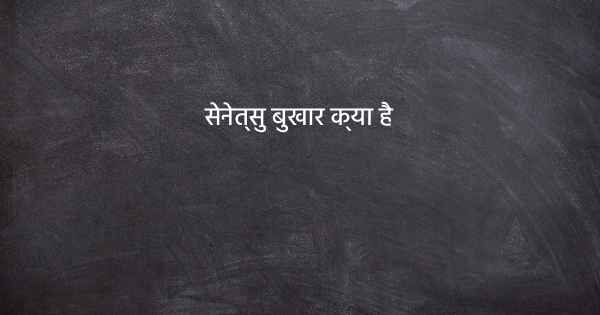 सेनेत्सु बुखार क्या है